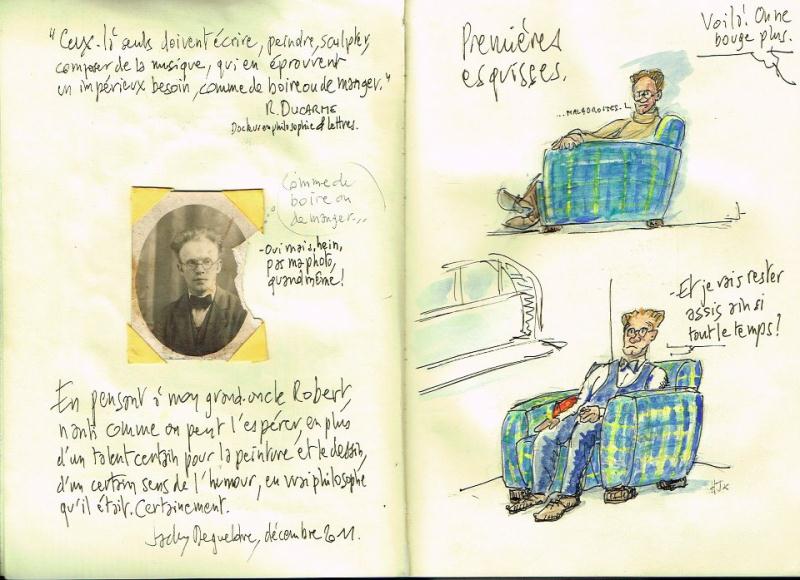 "Ceux-là seuls doivent écrire, peindre, sculpter,
composer de la musique, qui en éprouvent
un impérieux besoin, comme de boire ou de manger."
R. DUCARME
Docteur en philosophie & lettres.
Comme de
boire ou
de manger...
-Oui mais, hein,
pas ma photo,
quand même!
En pensant à mon grand-oncle Robert,
nanti comme on peut l'espérer, en plus
d'un talent certain pour la peinture et le dessin,
d'un certain sens de l'humour, en vrai philosophe
qu'il était. Certainement.
Jacky Degueldre, décembre 2011.
Premières
esquisses.
Voilà! On ne
bouge plus.
...MALADROITES.
-Et je vais rester
assis ainsi
tout le temps?